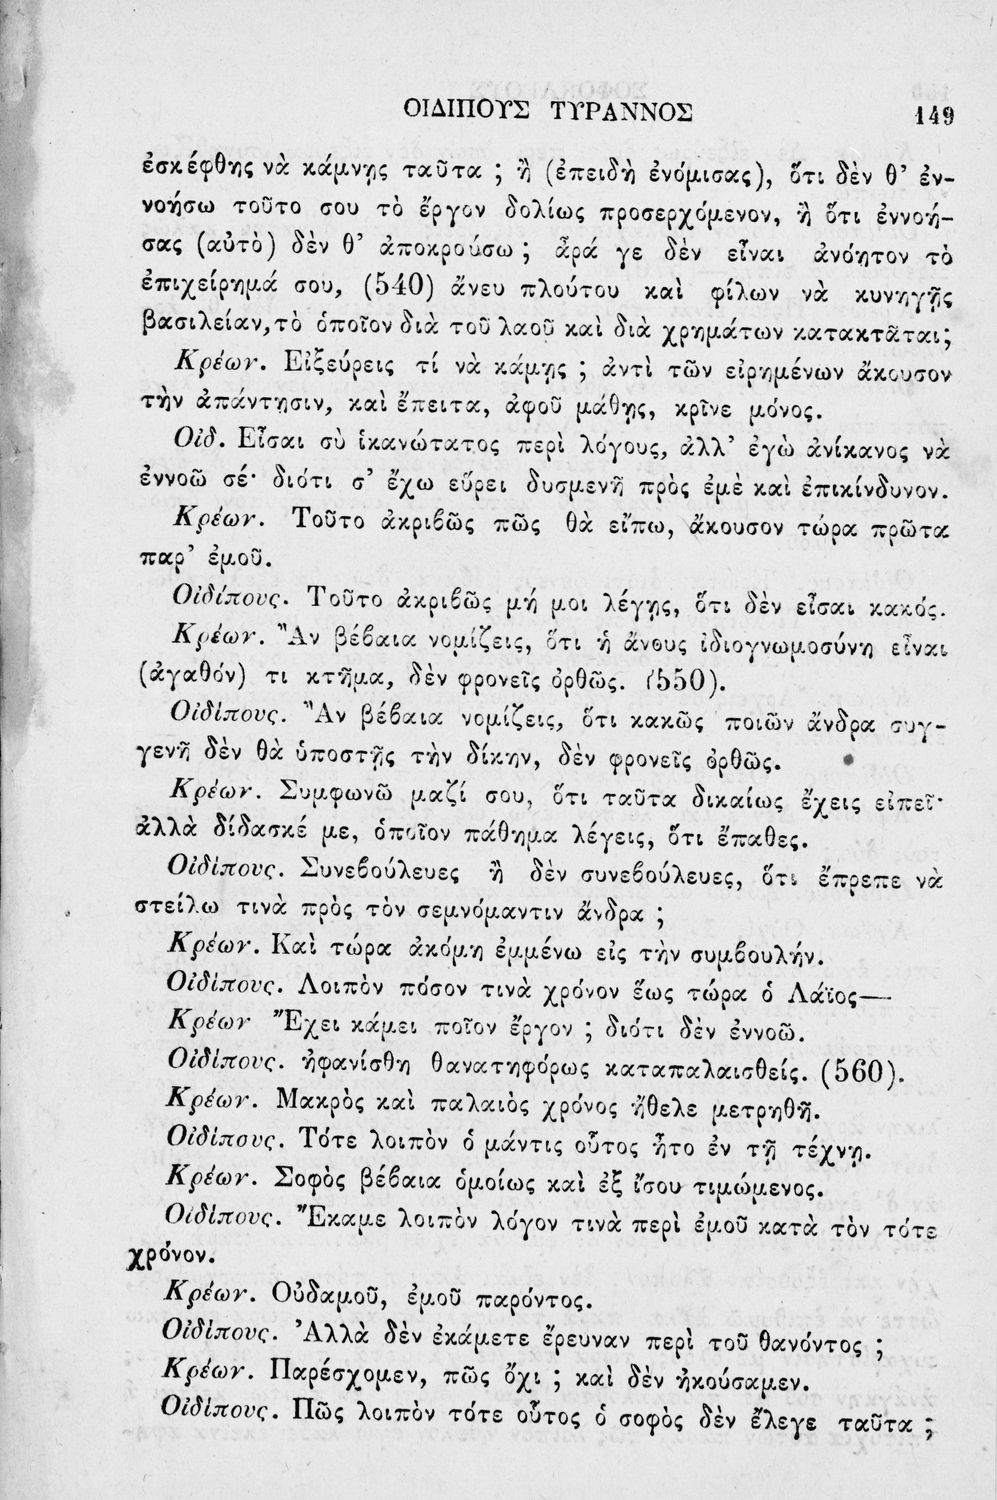 ΟΙΔΙΠΟΥΣ ΤΥΡΑΝΝΟΣ 149
ἐσκέφθης νὰ κάμνῃς ταῦτα ; ἢ (ἐπειδὴ ἐνόμισας), ὅτι δὲν θ’ ἐν-
νοήσω τοῦτο σου τὸ ἔργον δολίως προσερχόμενον, ἢ ὅτι ἐννοή-
σας (αὐτὸ) δὲν θ’ ἀποκρούσω ; ἆρά γε δὲν εἶναι ἀνόητον τὸ
ἐπιχείρημά σου, (540) ἄνευ πλούτου καὶ φίλων νὰ κυνηγῇς
βασιλείαν, τὸ ὁποῖον διὰ τοῦ λαοῦ καὶ διὰ χρημάτων κατακτᾶται;
Κρέων. Εἰξεύρεις τί νὰ κάμῃς ; ἀντὶ τῶν εἰρημένων ἄκουσον
τὴν ἀπάντησιν, καὶ ἔπειτα, ἀφοῦ μάθῃς, κρῖνε μόνος.
Οἰδ. Εἶσαι σὺ ἱκανώτατος περὶ λόγους, ἀλλ’ ἐγὼ ἀνίκανος νὰ
ἐννοῶ σέ· διότι σ’ ἔχω εὕρει δυσμενῆ πρὸς ἐμὲ καὶ ἐπικίνδυνον.
Κρέων. Τοῦτο ἀκριβῶς πῶς θὰ εἴπω, ἄκουσον τώρα πρῶτα
παρ’ ἐμοῦ.
Οἰδίπους. Τοῦτο ἀκριβῶς μή μοι λέγῃς, ὅτι δὲν εἶσαι κακός.
Κρέων. Ἂν βέβαια νομίζεις, ὅτι ἡ ἄνους ἰδιογνωμοσύνη εἶναι
(ἀγαθόν) τι κτῆμα, δὲν φρονεῖς ὀρθῶς. (550).
Οἰδίπους. Ἂν βέβαια νομίζεις, ὅτι κακῶς ποιῶν ἄνδρα συγ-
γενῆ δὲν θὰ ὑποστῇς τὴν δίκην, δὲν φρονεῖς ὀρθῶς.
Κρέων. Συμφωνῶ μαζί σου, ὅτι ταῦτα δικαίως ἔχεις εἰπεῖ·
ἀλλὰ δίδασκέ με, ὁποῖον πάθημα λέγεις, ὅτι ἔπαθες.
Οἰδίπους. Συνεβούλευες ἢ δὲν συνεβούλευες, ὅτι ἔπρεπε νὰ
στείλω τινὰ πρὸς τὸν σεμνόμαντιν ἄνδρα ;
Κρέων. Καὶ τώρα ἀκόμη ἐμμένω εἰς τὴν συμβουλήν.
Οἰδίπους. Λοιπὸν πόσον τινὰ χρόνον ἕως τώρα ὁ Λάϊος—
Κρέων Ἔχει κάμει ποῖον ἔργον ; διότι δὲν ἐννοῶ.
Οἰδίπους. ἠφανίσθη θανατηφόρως καταπαλαισθείς. (560).
Κρέων. Μακρὸς καὶ παλαιὸς χρόνος ἤθελε μετρηθῆ.
Οἰδίπους. Τότε λοιπὸν ὁ μάντις οὗτος ἦτο ἐν τῇ τέχνῃ.
Κρέων. Σοφὸς βέβαια ὁμοίως καὶ ἐξ ἴσου τιμώμενος.
Οἰδίπους. Ἔκαμε λοιπὸν λόγον τινὰ περὶ ἐμοῦ κατὰ τὸν τότε
χρόνον.
Κρέων. Οὐδαμοῦ, ἐμοῦ παρόντος.
Οἰδίπους. Ἀλλὰ δὲν ἐκάμετε ἔρευναν περὶ τοῦ θανόντος ;
Κρέων. Παρέσχομεν, πῶς ὄχι ; καὶ δὲν ἠκούσαμεν.
Οἰδίπους. Πῶς λοιπὸν τότε οὗτος ὁ σοφὸς δὲν ἔλεγε ταῦτα ;